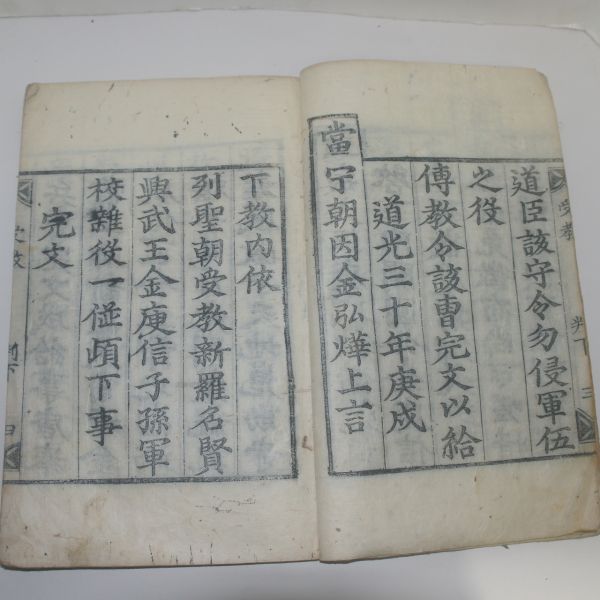 道臣該守令勿侵軍伍
之役
傳教令該曹完文以給
道光三十年庚戌
當宁朝因金弘燁上言
下教內依
列聖朝受教新羅名賢
興武王金庾信子孫軍
校雜役一從頉下事
完文
受教
判下
三
受教
四